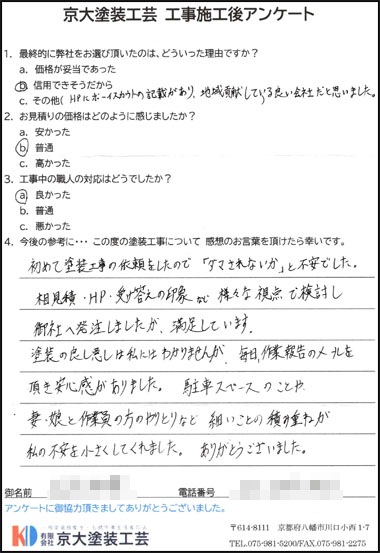 京大塗装工芸 工事施工後アンケート
1. 最終的に弊社をお選び頂いたのは、どういった理由ですか?
a. 価格が妥当であった
b. 信用できそうだから
c. その他( HPにボーイスカウトの記載があり、地域貢献している良い会社だと思いました。
2. お見積りの価格はどのように感じましたか?
a. 安かった
b. 普通
c. 高かった
3. 工事中の職人の対応はどうでしたか?
a. 良かった
b. 普通
c. 悪かった
4. 今後の参考に・・・ この度の塗装工事について 感想のお言葉を頂けたら幸いです。
初めて塗装工事の依頼をしたので「ダマされないか」と不安でした。
相見積・HP・受け答えの印象など様々な視点で検討し
御社へ発注しましたが、満足しています。
塗装の良し悪しは私にはわかりませんが、毎日、作業報告のメールを
頂き安心感がありました。 駐車スペースのことや、
妻・娘と作業員の方のやりとりなど 細いことの積み重ねが
私の不安を小さくしてくれました。 ありがとうございました。
御名前 電話番号
アンケートに御協力頂きましてありがとうございました。
KD 有限会社 京大塗装工芸
〒614-8111 京都府八幡市川口小西1-7
TEL.075-981-5200/FAX.075-981-2275